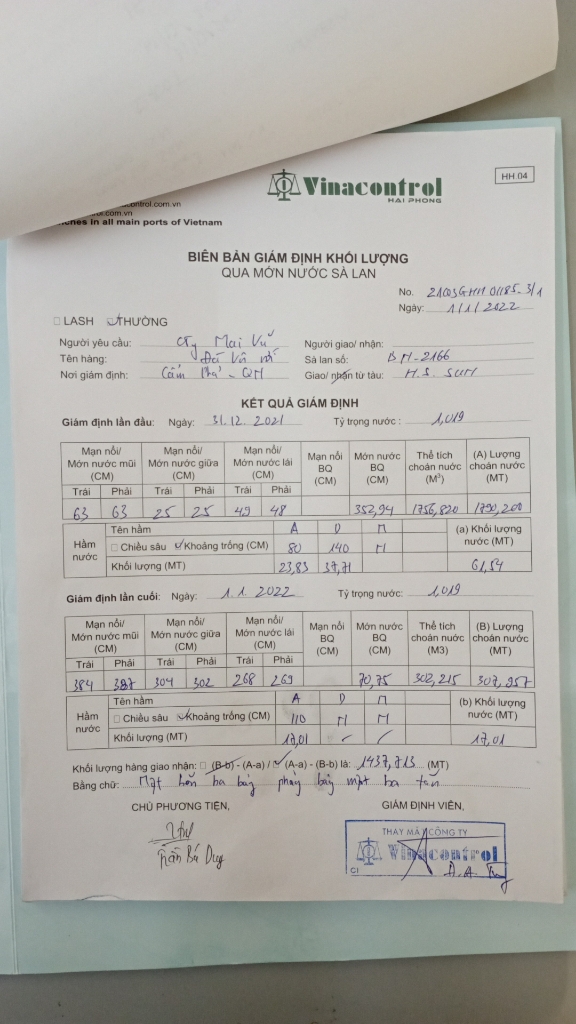 ontrol.com.vn
ol.com.vn
nches in all main ports of Vietnam
Vinacontrol
HAI PHONG
HH 04
BIÊN BẢN GIÁM ĐỊNH KHỐI LƯỢNG
QUA MỚN NƯỚC SÀ LAN
No.
Ngày: 1/1/2022
LASH THƯỜNG
Người yêu cầu: Cty Mai Vũ Người giao/ nhận:
Tên hàng: Đá Vôi Sà lan số: BM-2166
Nơi giám định: Cẩm Phả - QN Giao/ nhận từ tàu: H.S. SUN
KẾT QUẢ GIÁM ĐỊNH
Giám định lần đầu: Ngày: 31.12.2021 Tỷ trọng nước: 1,019
Mạn nổi/ Mớn nước mũi (CM) Mạn nổi/ Mớn nước giữa (CM) Mạn nổi/ Mớn nước lái (CM) Mạn nổi BQ (CM) Mớn nước BQ (CM) Thể tích choán nước (M³) (A) Lượng choán nước (MT)
Trái Phải Trái Phải Trái Phải
63 63 25 25 49 48 352,94 1756,820 1790,200
Hầm nước Tên hầm A D M (a) Khối lượng nước (MT)
Chiều sâu Khoảng trống (CM) 80 140 M
Khối lượng (MT) 23,83 37,71 61,54
Giám định lần cuối: Ngày: 1.1.2022 Tỷ trọng nước: 1,019
Mạn nổi/ Mớn nước mũi (CM) Mạn nổi/ Mớn nước giữa (CM) Mạn nổi/ Mớn nước lái (CM) Mạn nổi BQ (CM) Mớn nước BQ (CM) Thể tích choán nước (M3) (B) Lượng choán nước (MT)
Trái Phải Trái Phải Trái Phải
384 387 304 302 268 269 70,75 302,215 307,957
Hầm nước Tên hầm A D M (b) Khối lượng nước (MT)
Chiều sâu Khoảng trống (CM) 110 M M
Khối lượng (MT) 17,01 17,01
Khối lượng hàng giao nhận: (B-b) - (A-a) / (A-a) - (B-b) là: 1437,713 (MT)
Bằng chữ: Một bốn ba bảy phẩy bảy một ba tấn
CHỦ PHƯƠNG TIỆN, GIÁM ĐỊNH VIÊN,
Trần Bá Duy
THAY MẶT CÔNG TY
Vinacontrol
CI